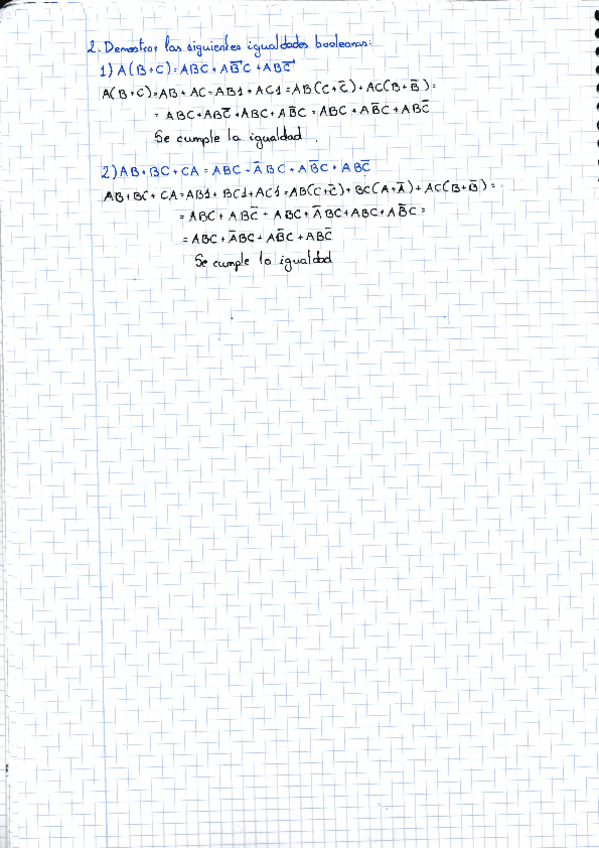 2. Demostrar las siguientes igualdades booleanas:
1) A(B+C)=ABC+AB̅C+ABC̅
A(B+C)=AB+AC=AB1+AC1=AB(C+C̅)+AC(B+B̅)=
= ABC+ABC̅+ABC+AB̅C=ABC+AB̅C+ABC̅
Se cumple la igualdad.
2) AB+BC+CA=ABC+A̅BC+AB̅C+ABC̅
AB+BC+CA=AB1+BC1+AC1=AB(C+C̅)+BC(A+A̅)+AC(B+B̅)=
= ABC+ABC̅+ABC+A̅BC+ABC+AB̅C=
= ABC+A̅BC+AB̅C+ABC̅
Se cumple la igualdad